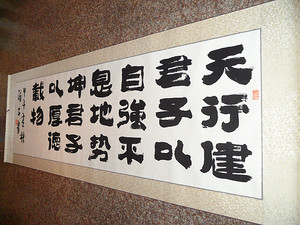 天行健
君子以
自強不
息地勢
坤君子
以厚德
載物